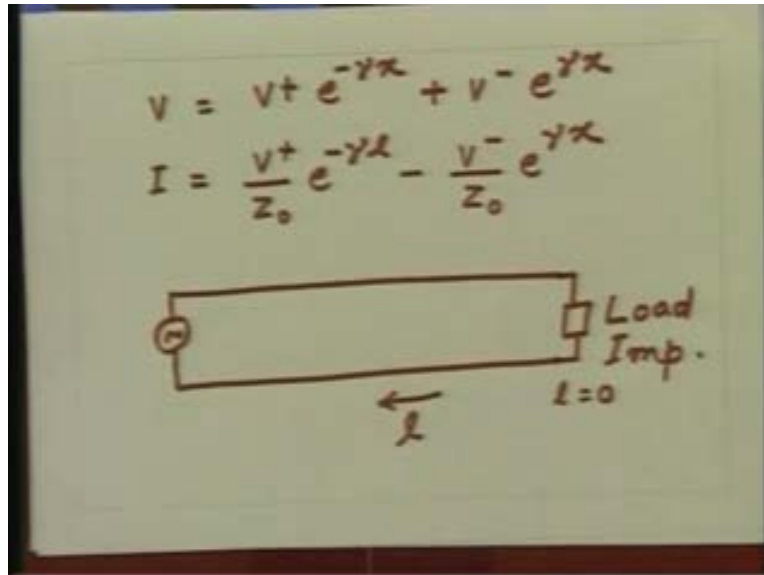 V = V+ e^-γx + V- e^γx
I = V+/Z₀ e^-γl - V-/Z₀ e^γx
~
Load
Imp.
l=0
l